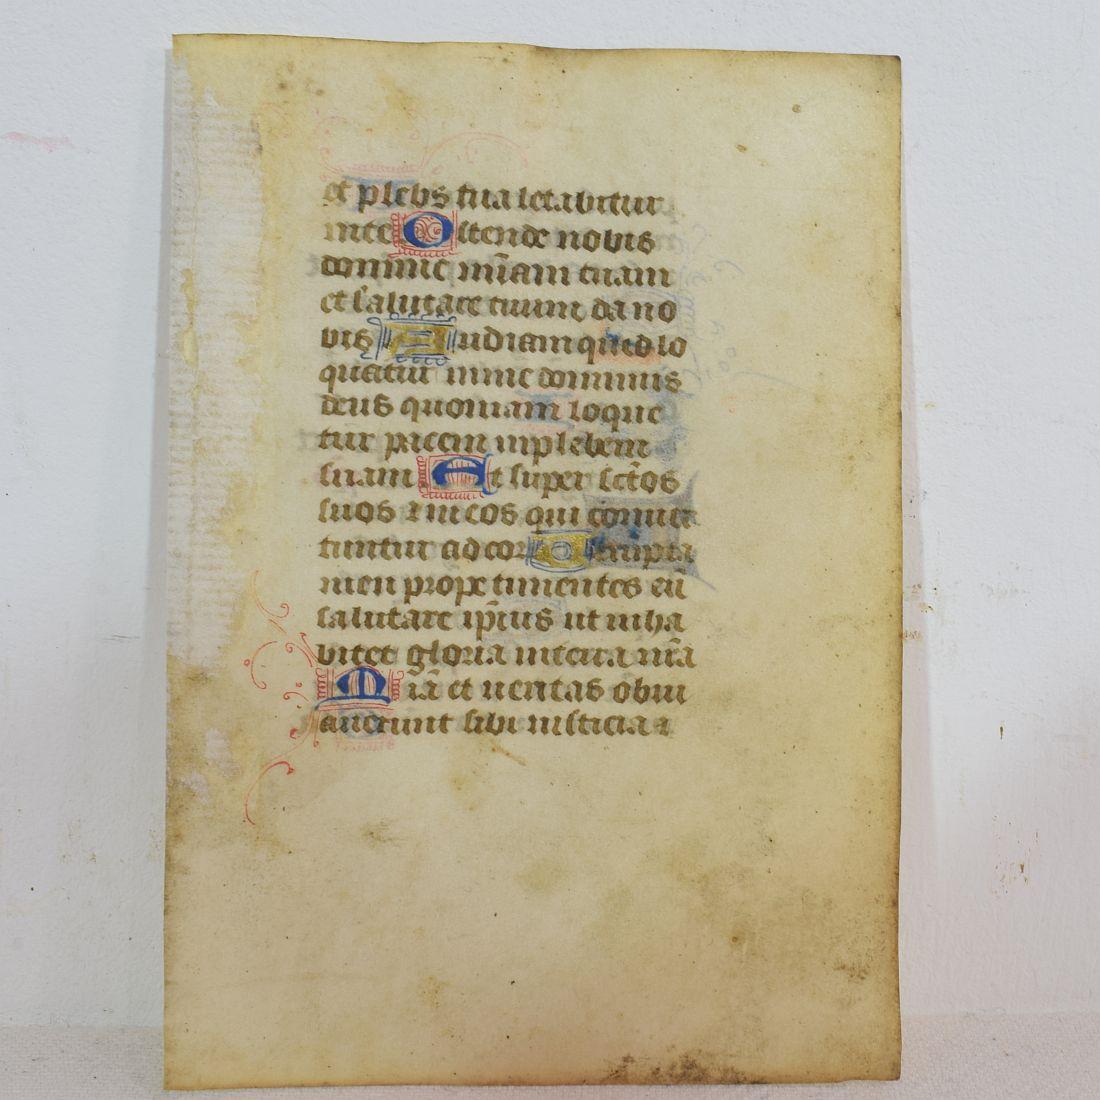 et plebs tua letabitur
in te Ostende nobis
domine m̄iam tuam
et salutare tuum da no
bis Audiam quid lo
quatur in me dominus
deus quoniam loque
tur pacem in plebem
suam Et super sc̄tos
suos ⁊ in eos qui conuer
tuntur ad cor Uerupta
men prope timentes eū
salutare ip̄ius ut inha
bitet gloria in terra nr̄a
M iā et ueritas obui
auerunt sibi iusticia ⁊